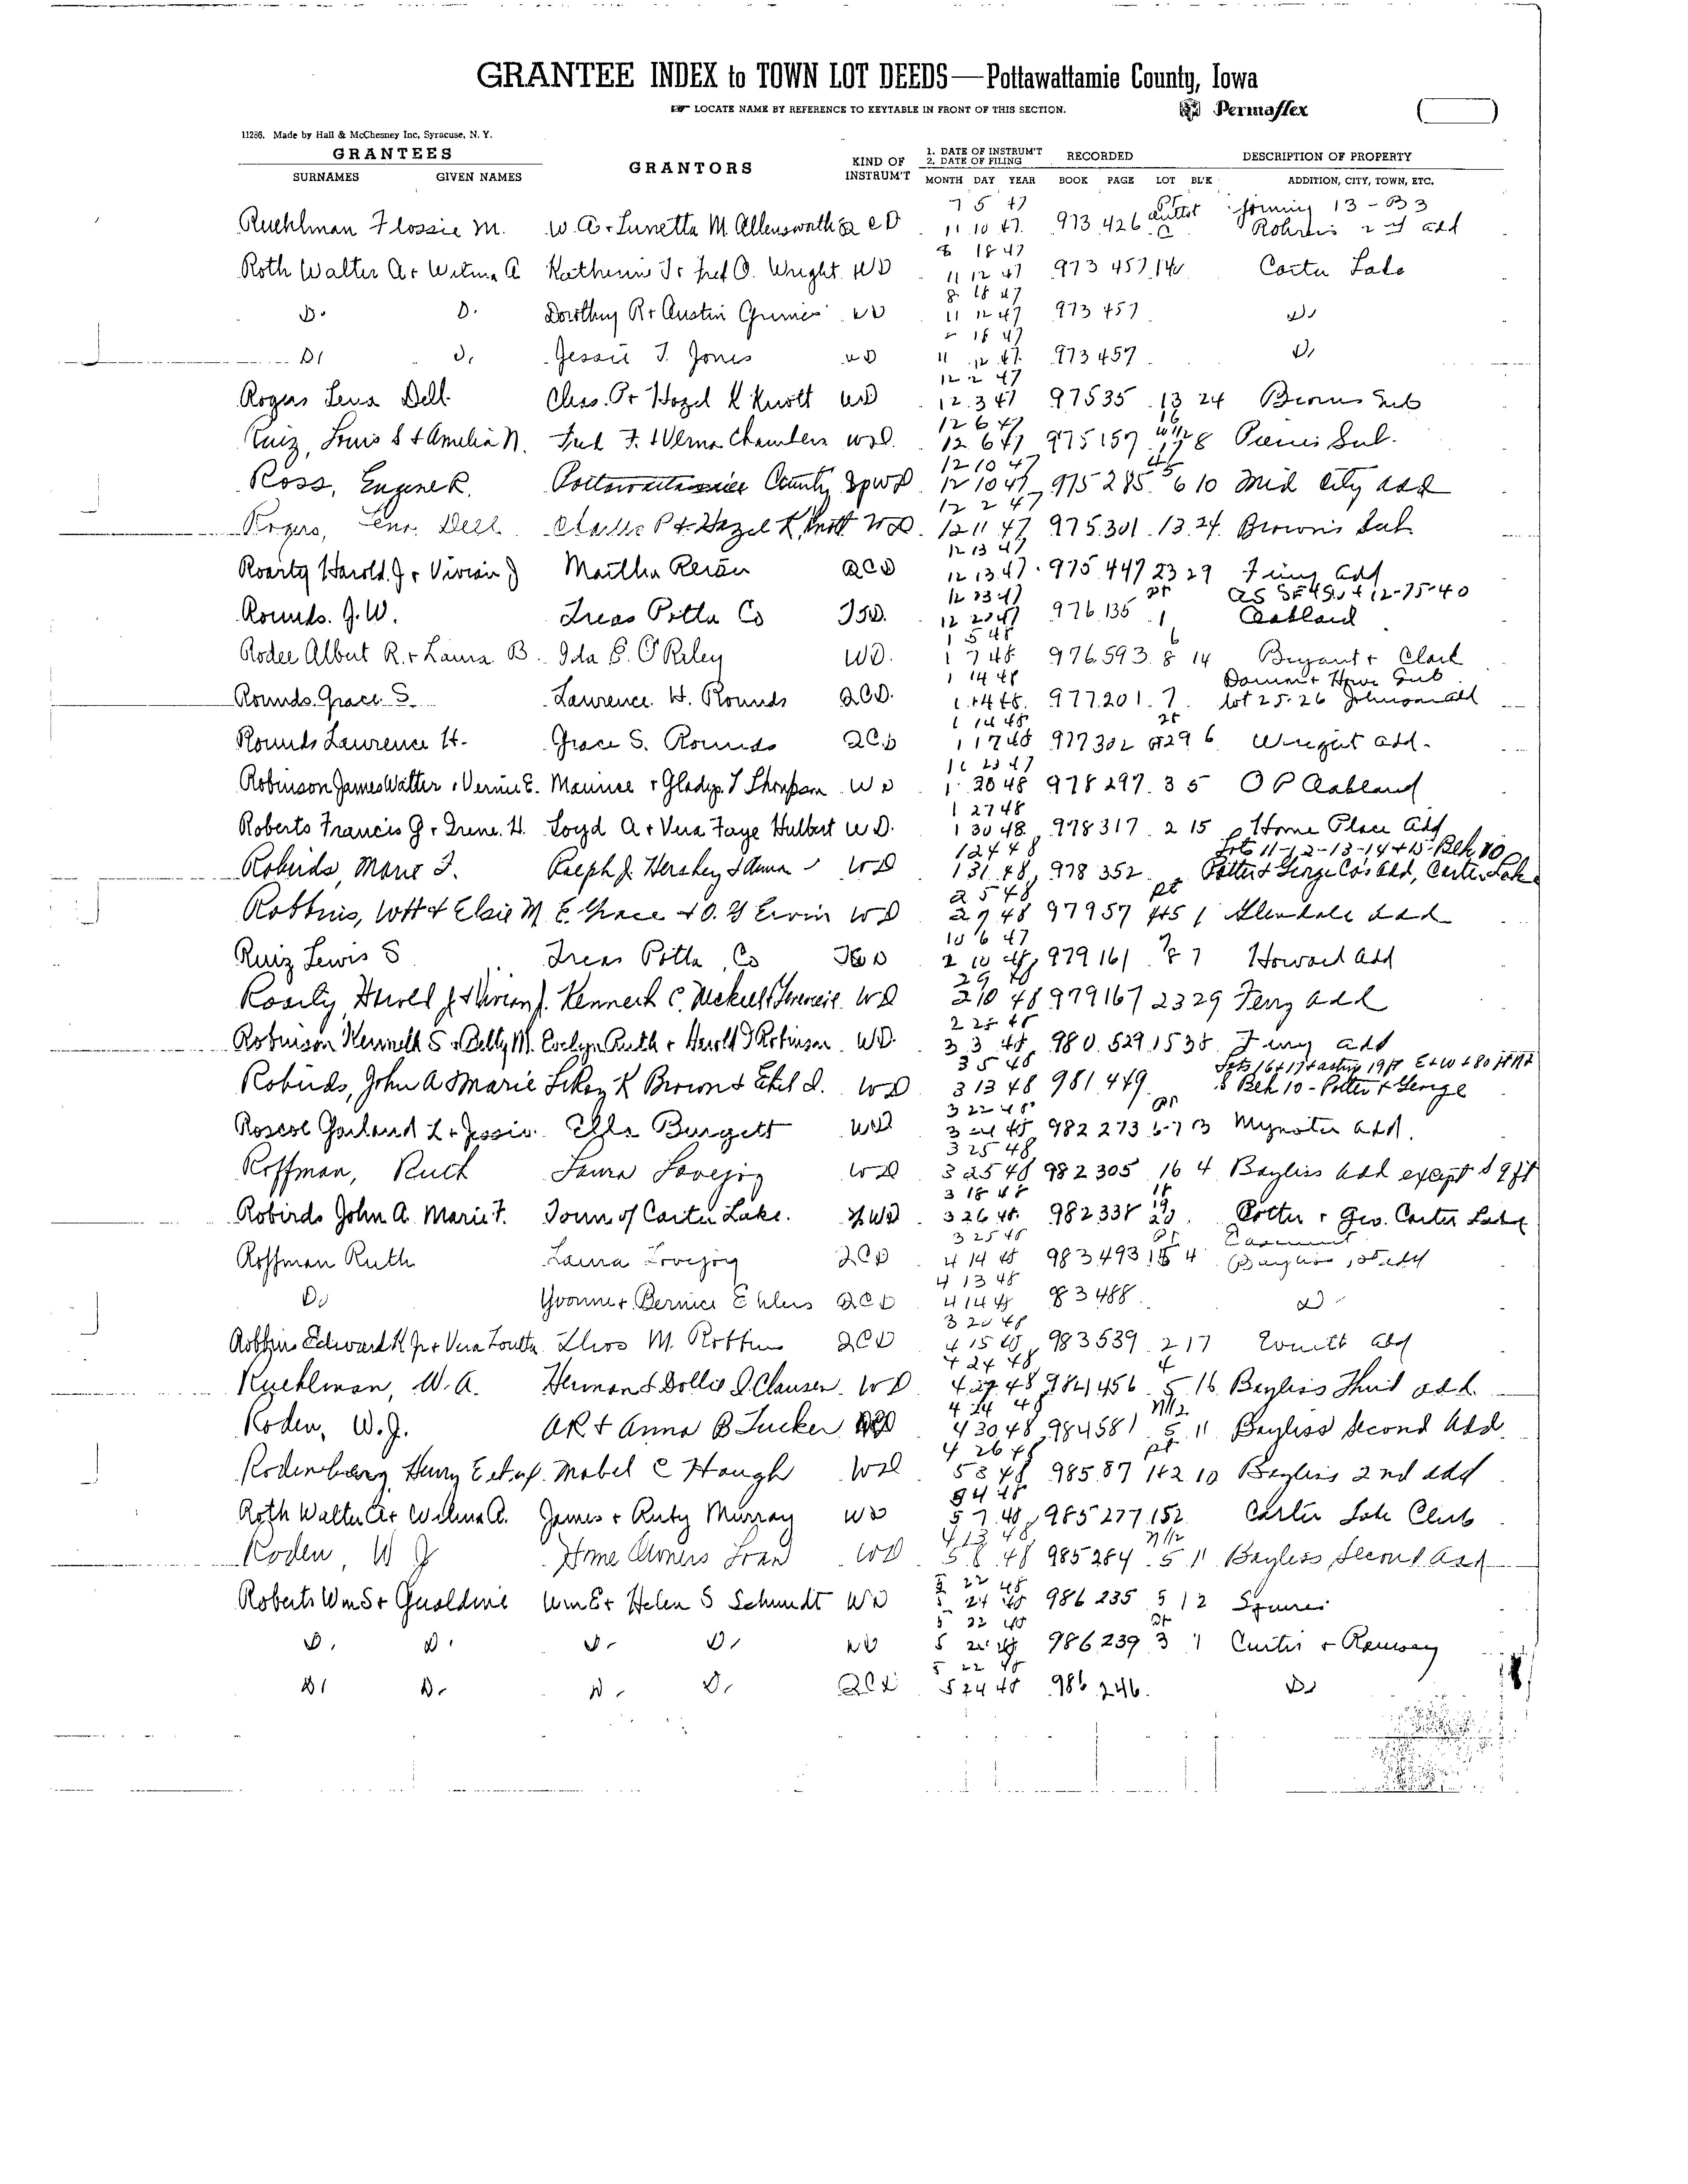 GRANTEE INDEX to TOWN LOT DEEDS—Pottawattamie County, Iowa
LOCATE NAME BY REFERENCE TO KEYTABLE IN FRONT OF THIS SECTION. Permaflex
11286. Made by Hall & McChesney Inc, Syracuse, N. Y.
GRANTEES GRANTORS KIND OF INSTRUM'T 1. DATE OF INSTRUM'T 2. DATE OF FILING RECORDED DESCRIPTION OF PROPERTY
SURNAMES GIVEN NAMES MONTH DAY YEAR BOOK PAGE LOT BL'K ADDITION, CITY, TOWN, ETC.
7 5 47 joining 13 - B3
Ruehlman Flossie M. W. A. + Lunetta M. Allensworth QCD 11 10 47 973 426 C 2nd add
8 18 47
Roth Walter A + Wilma A Katherine J + Fred O. Wright WD 11 12 47 973 457 140 Carter Lake
8 18 47
D. D. Dorothy R + Austin Grimes WD 11 12 47 973 457 D.
18 47
D. D. Jessie T. Jones WD 11 12 47 973 457 D.
12 2 47
Rogers Lena Dell Chas. P + Hazel K Knott WD 12 3 47 975 35 13 24 Browns Sub
12 6 47 16
Ruiz, Louis S + Amelia N. Fred F. + Verna Chambers WD. 12 6 47 975 157 W1/2 17 8 Pierces Sub.
12 10 47 45
Ross, Eugene R. Pottawattamie County SpWD 12 10 47 975 285 6 10 Mid City add
12 2 47
Rogers, Lena Dell Charles P + Hazel K. Knott WD. 12 11 47 975 301 13 24 Brown's Sub
12 13 47
Roarty Harold J + Vivian J Martha QCD 12 13 47 975 447 23 29 Ferry Add
12 23 47 pt as SE4SW4 12-75-40
Rounds. J. W. Treas Potta Co TSD. 12 23 47 976 135 1 Oakland
1 5 48 6
Rodee Albert R. + Laura B. Ida E. O'Riley WD. 1 7 48 976 593 8 14 Bryant + Clark
1 14 48 Sub
Rounds. Grace S. Lawrence H. Rounds QCD. 1 14 48 977 201 7 Lot 25-26 Johnson add
1 14 48 pt
Rounds Laurence H. Grace S. Rounds QCD 1 17 48 977 302 29 6 Wright add.
23 47
Robinson James Walter + Vernie E. Maurice + Gladys I Thompson WD 1 30 48 978 297 3 5 O P Oakland
1 27 48
Roberts Francis G + Irene H. Loyd A + Vera Faye Hulbert WD. 1 30 48 978 317 2 15 Home Place Add
1 24 48 Lots 11-12-13-14+15-Blk 10
Robirds, Marie F. Ralph J. Hershey + Anna WD 1 31 48 978 352 Potter + George Co's Add, Carter Lake
2 5 48 pt
Robbins, WH + Elsie M E. Grace + O. Y Ervin WD 2 7 48 979 57 4+5 1 Glendale Add
10 6 47
Ruiz Lewis S Treas Potta Co TSD 2 10 48 979 161 7 8 7 Howard Add
2 9 48
Roarty, Harold J + Vivian J. Kenneth C. WD 2 10 48 979 167 23 29 Ferry Add
2 28 48
Robinson Kenneth S + Betty M. Evelyn Ruth + Harold Robinson WD. 3 3 48 980 529 15 38 Ferry add
3 5 48
Robirds, John A + Marie F K Brown + Ethel I. WD 3 13 48 981 449 Blk 10 - Potter + George
3 22 48 pt
Roscoe Garland L + Jessie Ella Burgett WD 3 24 48 982 273 6-7 13 Mynster Add.
3 25 48
Roffman, Ruth Laura Lovejoy WD 3 25 48 982 305 16 4 Bayliss Add except S 9 ft
3 18 48 18
Robirds John A. Marie F. Town of Carter Lake. WD 3 26 48 982 338 19 20 Potter + Geo. Carter Lake
3 25 48 pt Easement
Roffman Ruth Laura Lovejoy QCD 4 14 48 983 493 15 4 Bayliss 1st add
4 13 48
D. Yvonne + Bernice Ehlers QCD 4 14 48 83 488 D
3 20 48
Robbins Edward K Jr + Vera Louetta M. Robbins QCD 4 15 48 983 539 2 17 Everett add
4 24 48 4
Ruehlman, W. A. Herman + Dollie I. Clausen WD 4 27 48 984 456 5 16 Bayliss Third add
4 24 48 N1/2
Roden, W. J. AR + Anna B Tucker 4 30 48 984 581 5 11 Bayliss Second Add
4 26 48 pt
Rodenburg, Henry E et up. Mabel C Hough WD 5 3 48 985 87 1+2 10 Bayliss 2nd add
5 4 48
Roth Walter A + Wilma A. James + Ruby Murray WD 5 7 48 985 277 152 Carter Lake Club
4 13 48 N1/2
Roden, W J Home Owners Loan WD 5 8 48 985 284 5 11 Bayliss Second Add
5 22 48
Roberts Wm S + Geraldine Wm E + Helen S Schmidt WD 5 24 48 986 235 5 12 Squires
5 22 48 pt
D. D. D. D. WD 5 24 48 986 239 3 1 Curtis + Ramsey
5 22 48
D. D. D. D. QCD 5 24 48 986 246 D.